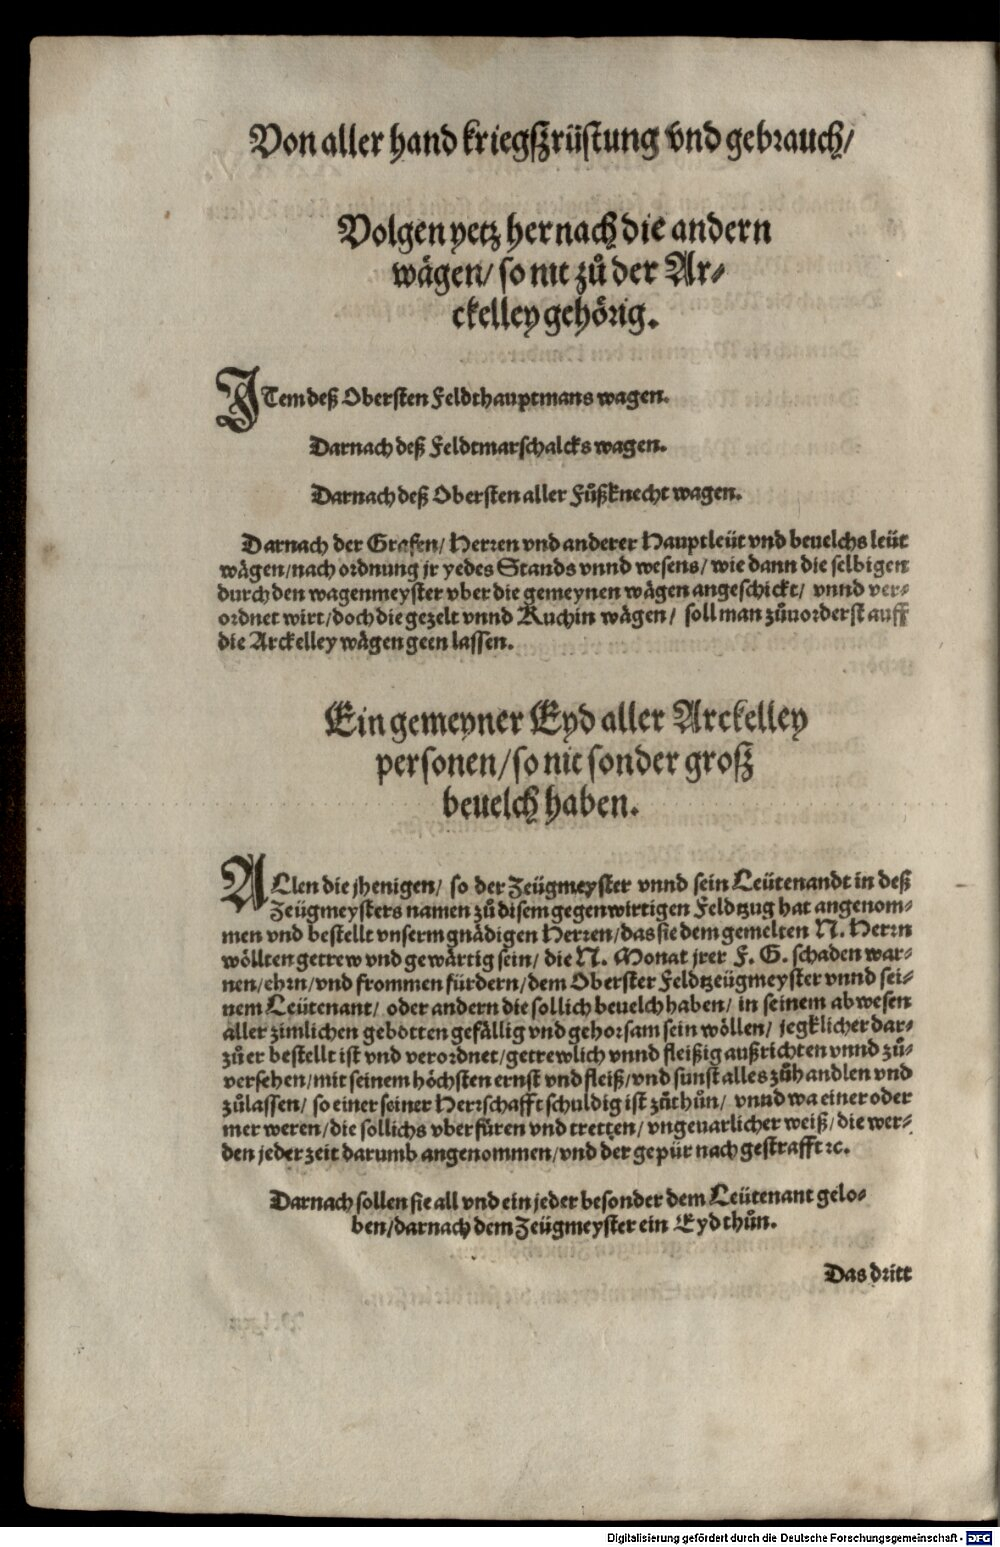 Von aller hand kriegßrüstung vnd gebrauch/
Volgen yetz hernach die andern
wägen/ so nit zů der Ar-
ckelley gehörig.
ITem deß Obersten Feldthauptmans wagen.
Darnach deß Feldtmarschalcks wagen.
Darnach deß Obersten aller Fůßknecht wagen.
Darnach der Grafen/ Herren vnd anderer Hauptleüt vnd beuelchs leüt
wägen/ nach ordnung jr yedes Stands vnnd wesens/ wie dann die selbigen
durch den wagenmeyster vber die gemeynen wägen angeschickt/ vnnd ver-
ordnet wirt/ doch die gezelt vnnd Kuchin wägen/ soll man zůuorderst auff
die Arckelley wägen geen lassen.
Ein gemeyner Eyd aller Arckelley
personen/ so nit sonder groß
beuelch haben.
ALlen die jhenigen/ so der Zeügmeyster vnnd sein Leütenandt in deß
Zeügmeysters namen zů disem gegenwirtigen Feldtzug hat angenom-
men vnd bestellt vnserm gnädigen Herren/ das sie dem gemelten N. Herrn
wöllten getrew vnd gewärtig sein/ die N. Monat jrer F. G. schaden war-
nen/ ehrn/ vnd frommen fürdern/ dem Oberster Feldtzeügmeyster vnnd sei-
nem Leütenant/ oder andern die sollich beuelch haben/ in seinem abwesen
aller zimlichen gebotten gefällig vnd gehorsam sein wöllen/ jegklicher dar-
zů er bestellt ist vnd verordnet/ getrewlich vnnd fleißig außrichten vnnd zů-
versehen/ mit seinem höchsten ernst vnd fleiß/ vnd sunst alles zůhandlen vnd
zůlassen/ so einer seiner Herrschafft schuldig ist zůthůn/ vnnd wa einer oder
mer weren/ die sollichs vberfüren vnd tretten/ vngeuarlicher weiß/ die wer-
den jeder zeit darumb angenommen/ vnd der gepür nach gestrafft ꝛc.
Darnach sollen sie all vnd ein jeder besonder dem Leütenant gelo-
ben/ darnach dem Zeügmeyster ein Eyd thůn.
Das dritt
Digitalisierung gefördert durch die Deutsche Forschungsgemeinschaft - DFG